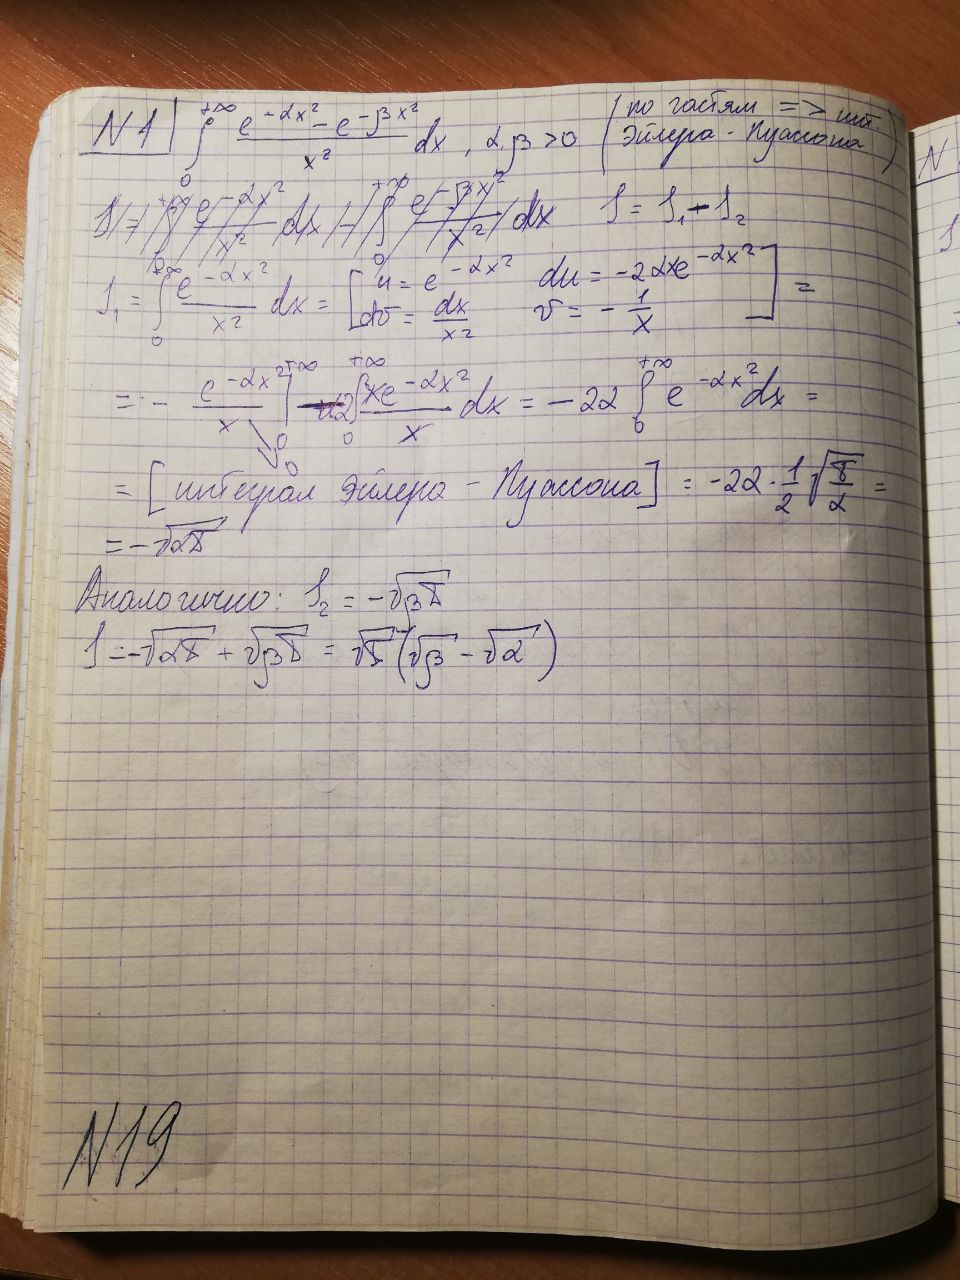 N1 ∫₀^{+∞} (e^{-αx²} - e^{-βx²})/x² dx , α, β > 0 (по частям => инт. Эйлера - Пуассона)
I = ∫₀^{+∞} e^{-αx²}/x² dx - ∫₀^{+∞} e^{-βx²}/x² dx I = I₁ - I₂
I₁ = ∫₀^{+∞} e^{-αx²}/x² dx = [u = e^{-αx²} du = -2αxe^{-αx²} dv = dx/x² v = -1/x] =
= - e^{-αx²}/x |₀^{+∞} - α2 ∫₀^{+∞} xe^{-αx²}/x dx = -2α ∫₀^{+∞} e^{-αx²} dx =
0
= [интеграл Эйлера - Пуассона] = -2α · 1/2 √(π/α) =
= -√(απ)
Аналогично: I₂ = -√(βπ)
I = -√(απ) + √(βπ) = √π (√β - √α)
N19
N